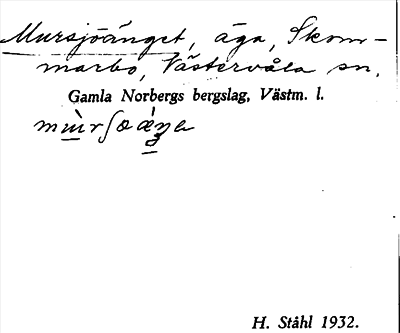 Mursjöänget, äga, Skom-
marbo, Västervåla sn,
Gamla Norbergs bergslag, Västm. l.
H. Ståhl 1932.